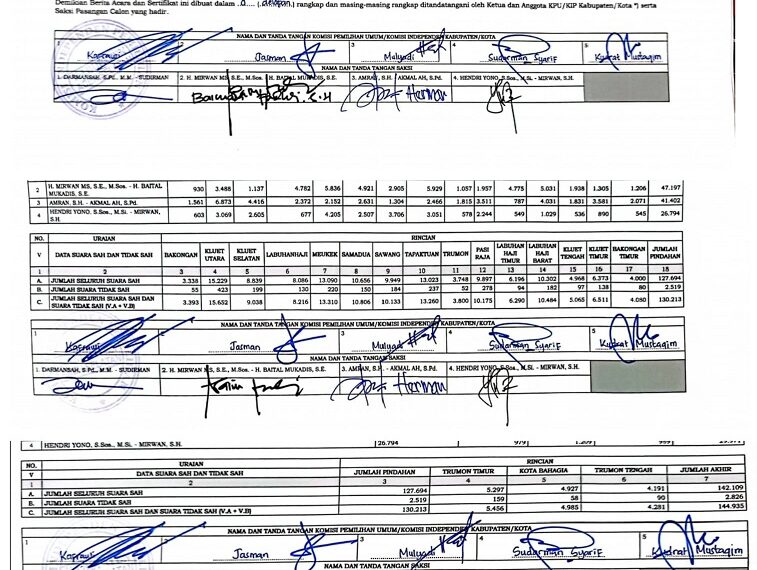 Demikian Berita Acara dan Sertifikat ini dibuat dalam
rangkap dan masing-masing rangkap ditandatangani oleh Ketua dan Anggota KPU/KIP Kabupaten/Kota *) serta
Saksi Pasangan Calon yang hadir.
NAMA DAN TANDA TANGAN KOMISI PEMILIHAN UMUM/KOMISI INDEPENDEN KABUPATEN/KOTA
1 Kafrawi 2 Jasman 3 Mulyadi 4 Sudarman Syarif 5 Kudrat Mustaqim
NAMA DAN TANDA TANGAN SAKSI
1. DARMANSAH, S.Pd., M.M. - SUDIRMAN 2. H. MIRWAN MS, S.E., M.Sos. - H. BAITAL MUKADIS, S.E. 3. AMRAN, S.H. - AKMAL AH, S.Pd. 4. HENDRI YONO, S.Sos., M.Si. - MIRWAN, S.H.
Herman
2 H. MIRWAN MS, S.E., M.Sos. - H. BAITAL MUKADIS, S.E. 930 3.488 1.137 4.782 5.836 4.921 2.905 5.929 1.057 1.957 4.775 5.031 1.938 1.305 1.206 47.197
3 AMRAN, S.H. - AKMAL AH, S.Pd. 1.561 6.873 4.416 2.372 2.152 2.631 1.304 2.466 1.815 3.511 787 4.031 1.831 3.581 2.071 41.402
4 HENDRI YONO, S.Sos., M.Si. - MIRWAN, S.H. 603 3.069 2.605 677 4.205 2.507 3.706 3.051 578 2.244 549 1.029 536 890 545 26.794
NO. URAIAN RINCIAN
V DATA SUARA SAH DAN TIDAK SAH BAKONGAN KLUET UTARA KLUET SELATAN LABUHANHAJI MEUKEK SAMADUA SAWANG TAPAKTUAN TRUMON PASI RAJA LABUHAN HAJI TIMUR LABUHAN HAJI BARAT KLUET TENGAH KLUET TIMUR BAKONGAN TIMUR JUMLAH PINDAHAN
1 2 3 4 5 6 7 8 9 10 11 12 13 14 15 16 17 18
A. JUMLAH SELURUH SUARA SAH 3.338 15.229 8.839 8.086 13.090 10.656 9.949 13.023 3.748 9.897 6.196 10.302 4.968 6.373 4.000 127.694
B. JUMLAH SUARA TIDAK SAH 55 423 199 130 220 150 184 237 52 278 94 182 97 138 80 2.519
C. JUMLAH SELURUH SUARA SAH DAN SUARA TIDAK SAH (V.A + V.B) 3.393 15.652 9.038 8.216 13.310 10.806 10.133 13.260 3.800 10.175 6.290 10.484 5.065 6.511 4.080 130.213
NAMA DAN TANDA TANGAN KOMISI PEMILIHAN UMUM/KOMISI INDEPENDEN KABUPATEN/KOTA
1 Kafrawi 2 Jasman 3 Mulyadi 4 Sudarman Syarif 5 Kudrat Mustaqim
NAMA DAN TANDA TANGAN SAKSI
1. DARMANSAH, S.Pd., M.M. - SUDIRMAN 2. H. MIRWAN MS, S.E., M.Sos. - H. BAITAL MUKADIS, S.E. 3. AMRAN, S.H. - AKMAL AH, S.Pd. 4. HENDRI YONO, S.Sos., M.Si. - MIRWAN, S.H.
Herman
4 HENDRI YONO, S.Sos., M.Si. - MIRWAN, S.H. 26.794 979
NO. URAIAN RINCIAN
V DATA SUARA SAH DAN TIDAK SAH JUMLAH PINDAHAN TRUMON TIMUR KOTA BAHAGIA TRUMON TENGAH JUMLAH AKHIR
1 2 3 4 5 6 7
A. JUMLAH SELURUH SUARA SAH 127.694 5.297 4.927 4.191 142.109
B. JUMLAH SUARA TIDAK SAH 2.519 159 58 90 2.826
C. JUMLAH SELURUH SUARA SAH DAN SUARA TIDAK SAH (V.A + V.B) 130.213 5.456 4.985 4.281 144.935
NAMA DAN TANDA TANGAN KOMISI PEMILIHAN UMUM/KOMISI INDEPENDEN KABUPATEN/KOTA
1 Kafrawi 2 Jasman 3 Mulyadi 4 Sudarman Syarif 5 Kudrat Mustaqim
NAMA DAN TANDA TANGAN SAKSI